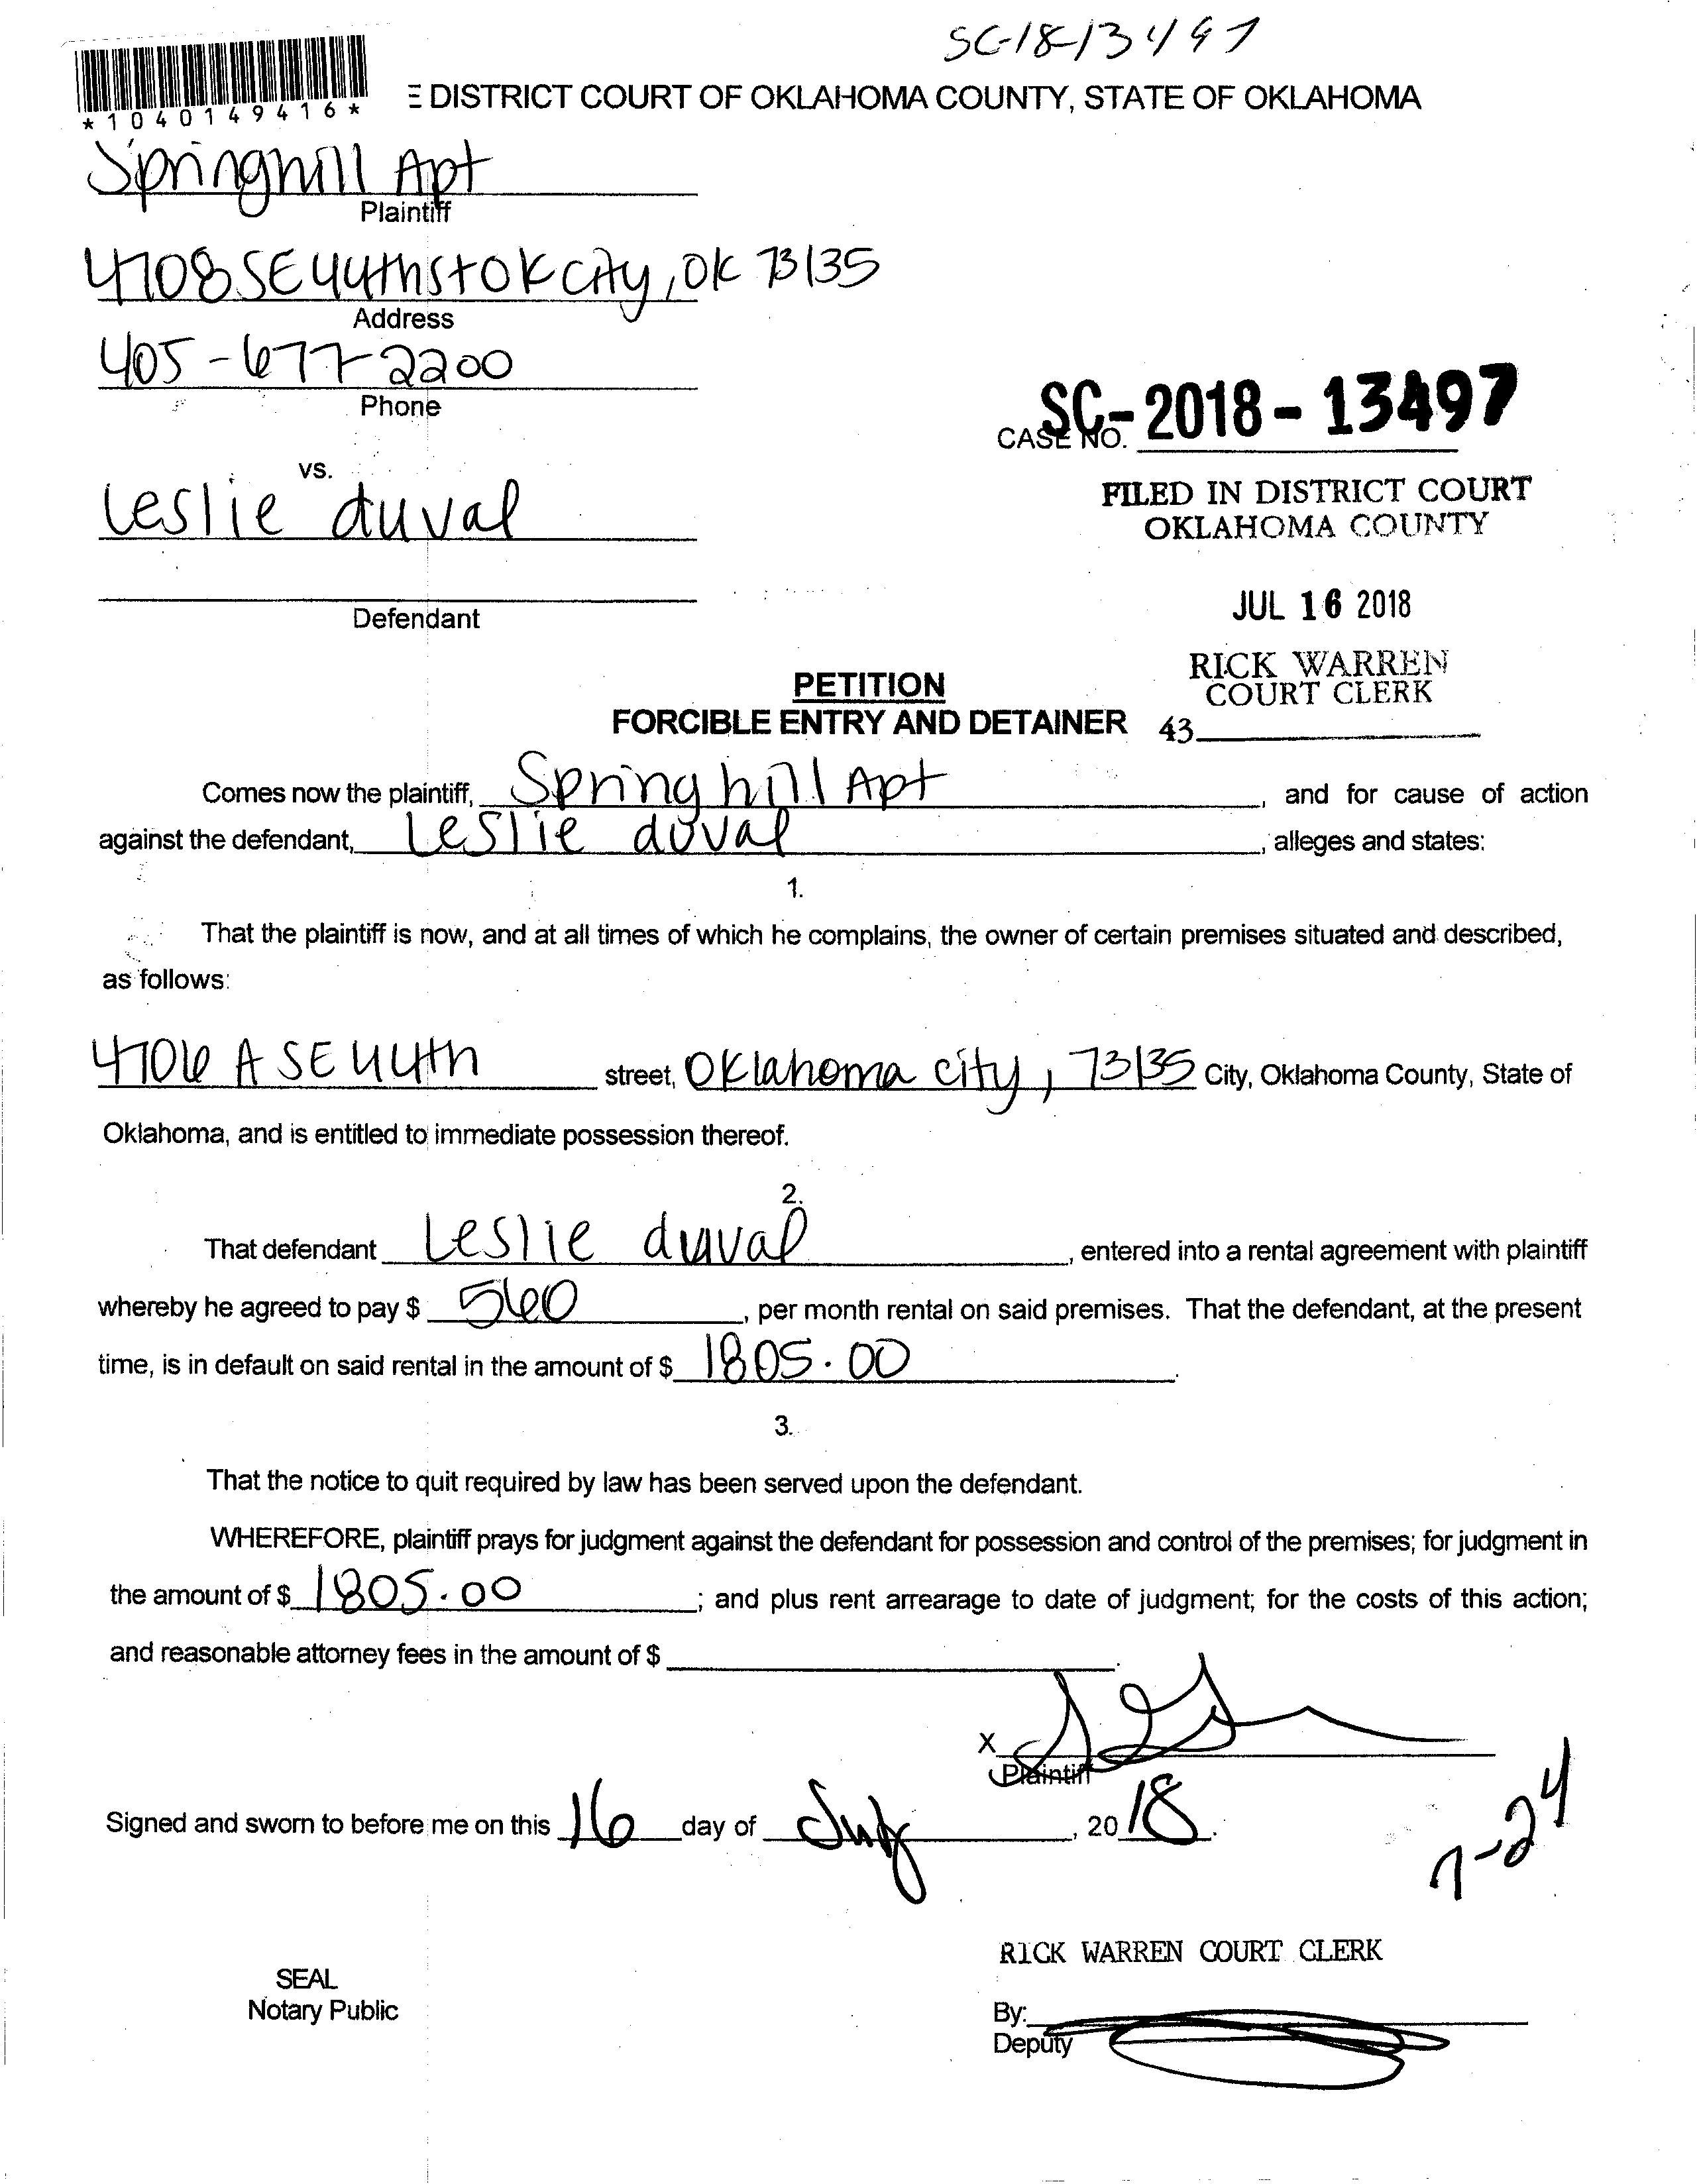 SC-18-13497
*1040149416*
E DISTRICT COURT OF OKLAHOMA COUNTY, STATE OF OKLAHOMA
Springhill Apt
Plaintiff
4708 SE 44th st OK City, OK 73135
Address
405-677-2200
Phone
CASE NO. SC-2018-13497
vs.
Leslie duval
FILED IN DISTRICT COURT
OKLAHOMA COUNTY
Defendant
JUL 16 2018
RICK WARREN
COURT CLERK
PETITION
FORCIBLE ENTRY AND DETAINER
43
Comes now the plaintiff, Springhill Apt, and for cause of action
against the defendant, Leslie duval, alleges and states:
1.
That the plaintiff is now, and at all times of which he complains, the owner of certain premises situated and described,
as follows:
4706 A SE 44th street, Oklahoma city, 73135 City, Oklahoma County, State of
Oklahoma, and is entitled to immediate possession thereof.
2.
That defendant Leslie duval, entered into a rental agreement with plaintiff
whereby he agreed to pay $ 560, per month rental on said premises. That the defendant, at the present
time, is in default on said rental in the amount of $ 1805.00.
3.
That the notice to quit required by law has been served upon the defendant.
WHEREFORE, plaintiff prays for judgment against the defendant for possession and control of the premises; for judgment in
the amount of $ 1805.00; and plus rent arrearage to date of judgment; for the costs of this action;
and reasonable attorney fees in the amount of $ .
X
Plaintiff
Signed and sworn to before me on this 16 day of July, 2018.
7-24
RICK WARREN COURT CLERK
SEAL
Notary Public
By:
Deputy